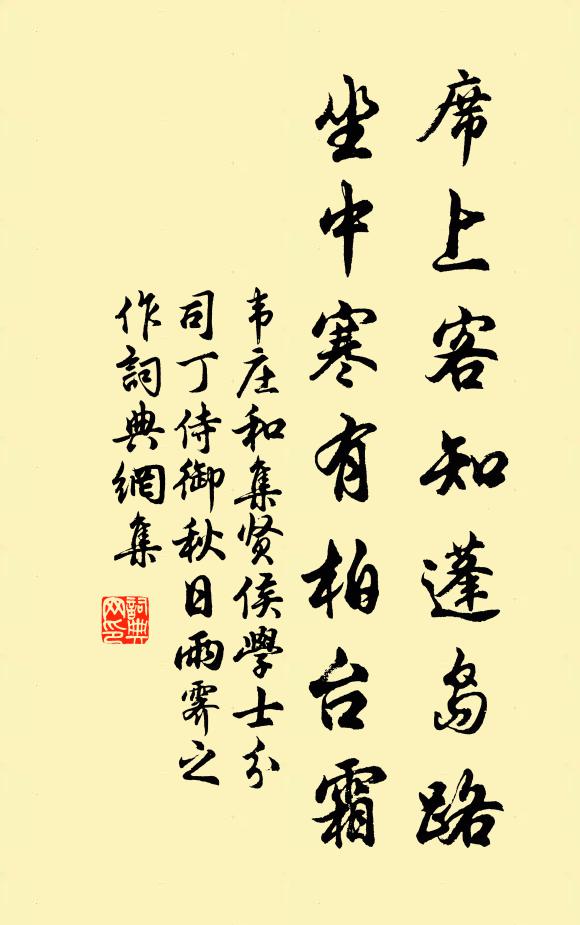 席上客知蓬岛路
坐中寒有柏台霜
韦庄和集贤侯學士分
司丁侍御秋日雨霁之
作詞典網集
詞典
网印